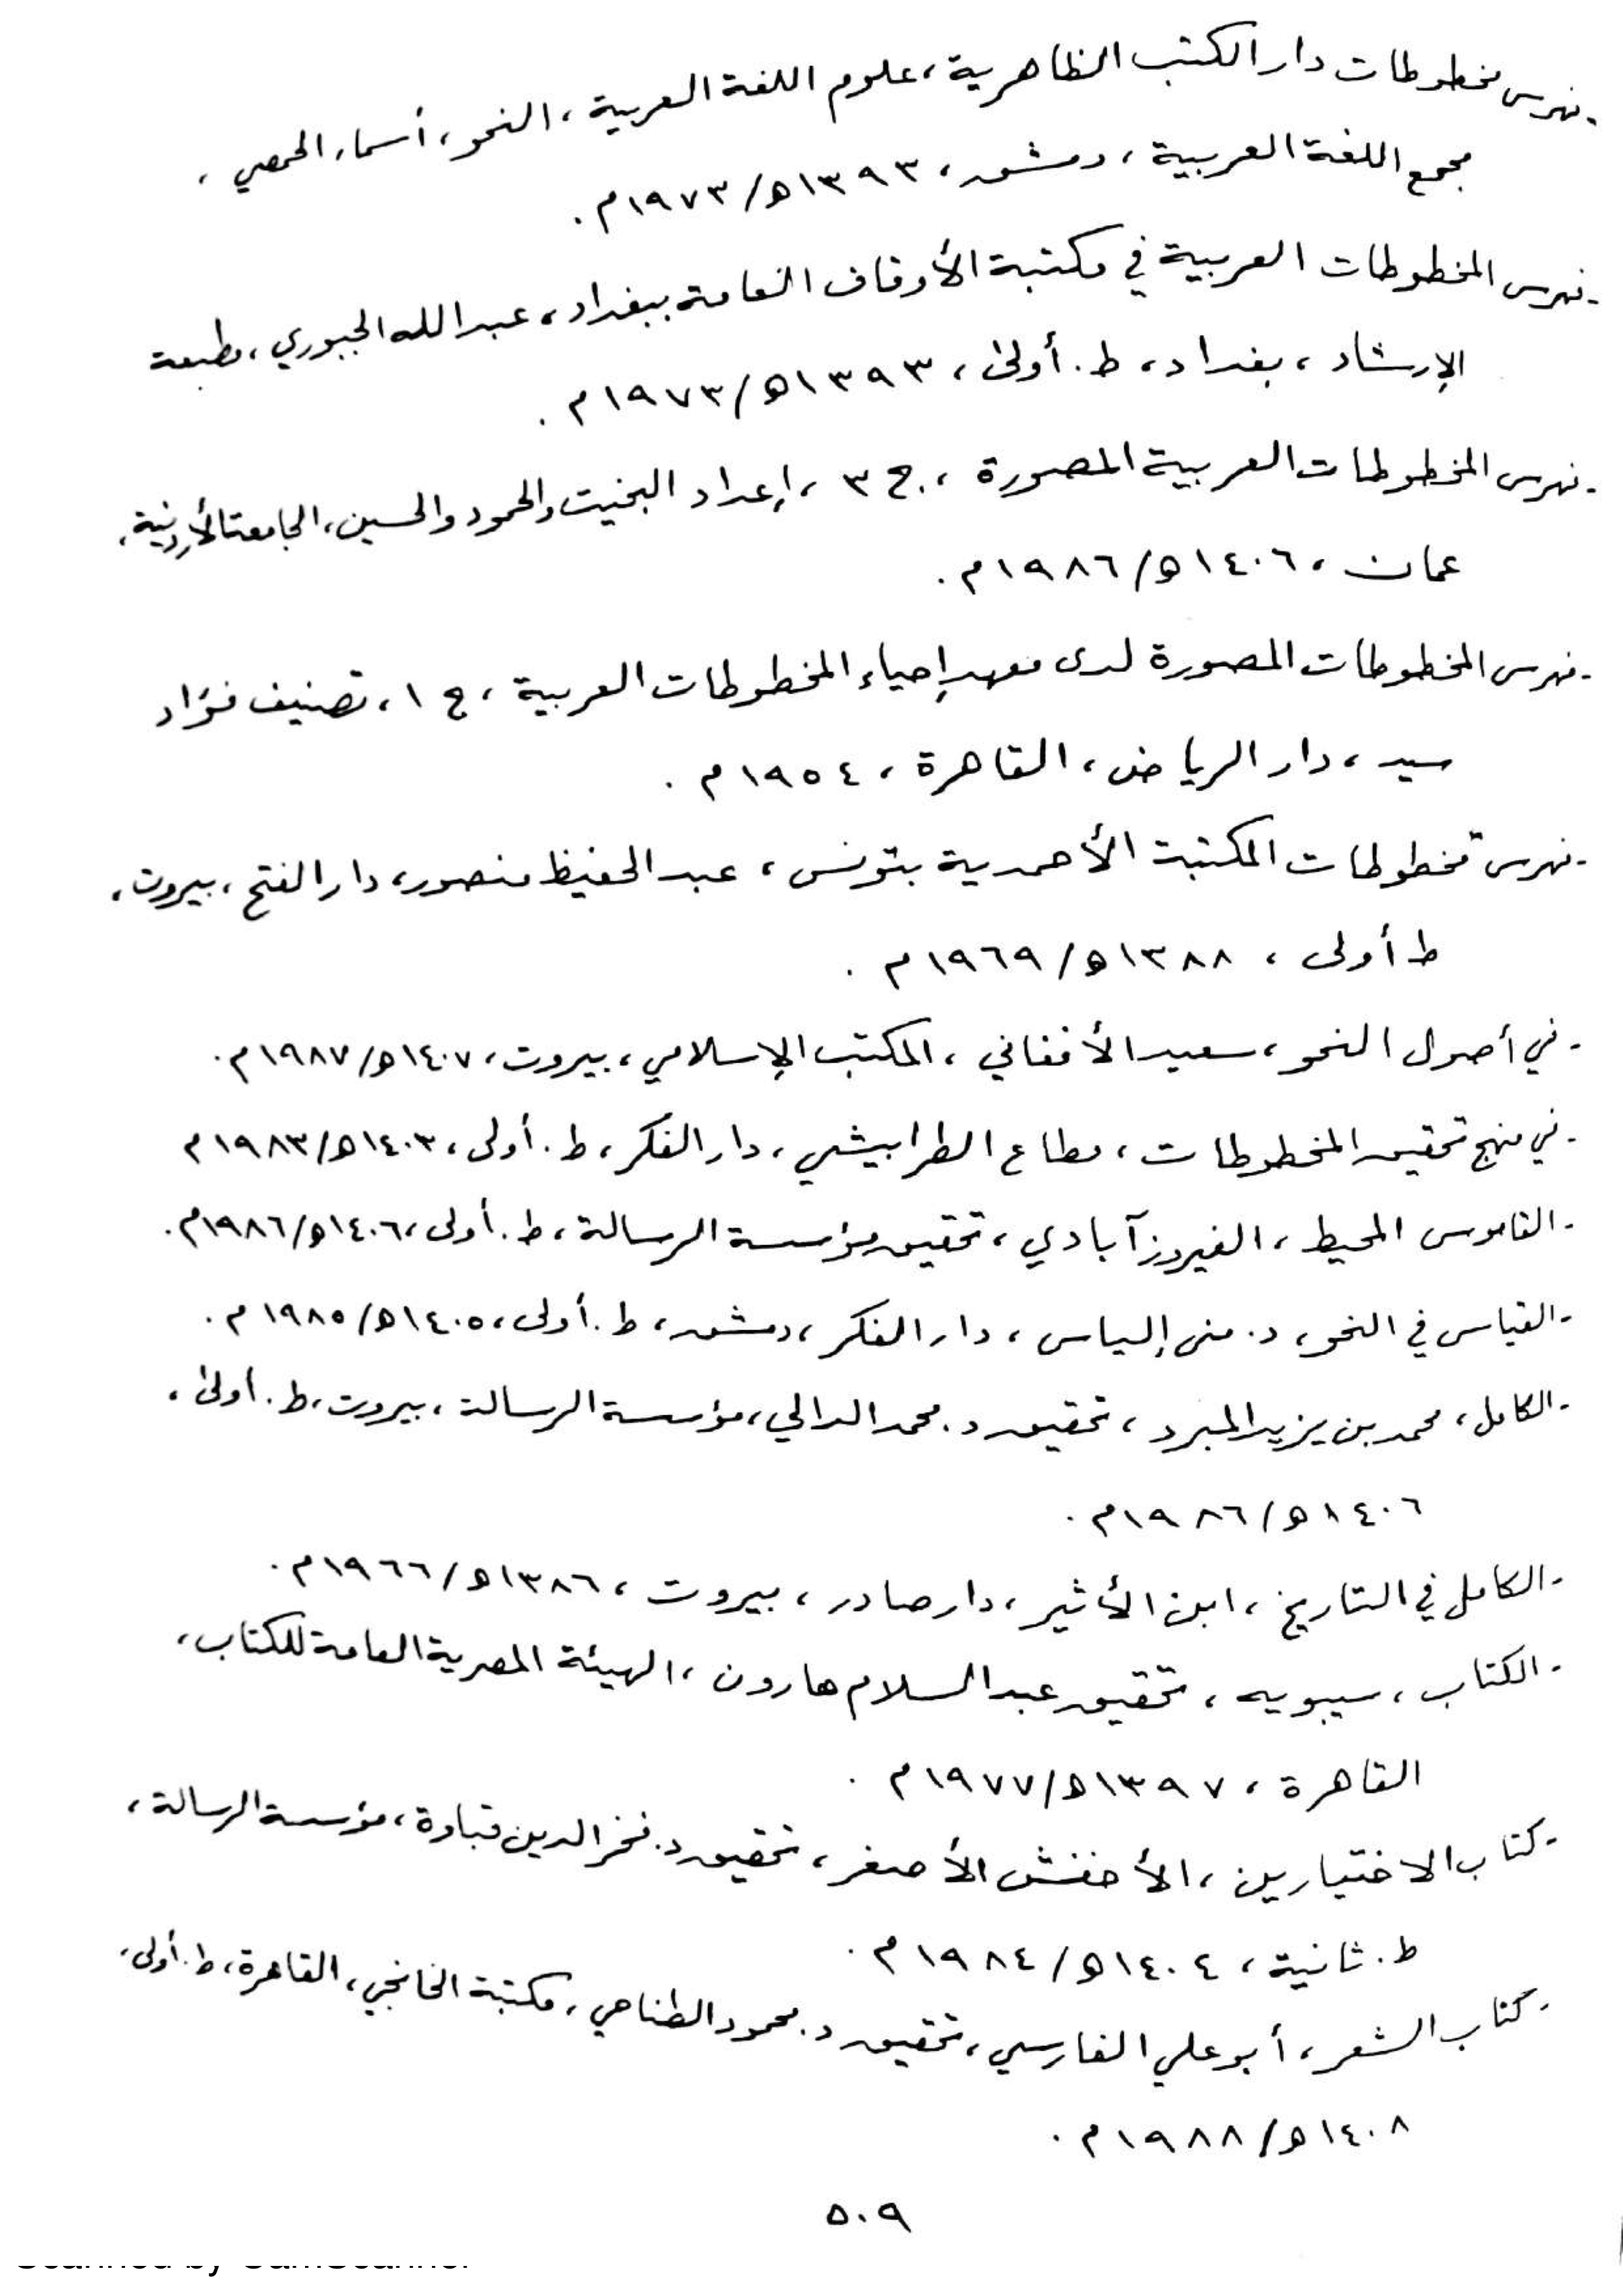 - فهرس مخطوطات دار الكتب الظاهرية، علوم اللغة العربية، النحو، أسماء الحمصي،
مجمع اللغة العربية، دمشق، ١٣٩٣هـ/١٩٧٣م.
- فهرس المخطوطات العربية في مكتبة الأوقاف العامة ببغداد، عبد الله الجبوري، مطبعة
الإرشاد، بغداد، ط. أولى، ١٣٩٣هـ/١٩٧٣م.
- فهرس المخطوطات العربية المصورة، ج ٣، إعداد البخيت والحمود والحسين، الجامعة الأردنية،
عمان، ١٤٠٦هـ/١٩٨٦م.
- فهرس المخطوطات المصورة لدى معهد إحياء المخطوطات العربية، ج ١، تصنيف فؤاد
سيد، دار الرياض، القاهرة، ١٩٥٤م.
- فهرس مخطوطات المكتبة الأحمدية بتونس، عبد الحفيظ منصور، دار الفتح، بيروت،
ط أولى، ١٣٨٨هـ/١٩٦٩م.
- في أصول النحو، سعيد الأفغاني، المكتب الإسلامي، بيروت، ١٤٠٧هـ/١٩٨٧م.
- في منهج تحقيق المخطوطات، مطاع الطرابيشي، دار الفكر، ط. أولى، ١٤٠٣هـ/١٩٨٣م
- القاموس المحيط، الفيروزآبادي، تحقيق مؤسسة الرسالة، ط. أولى، ١٤٠٦هـ/١٩٨٦م.
- القياس في النحو، د. منى إلياس، دار الفكر، دمشق، ط. أولى، ١٤٠٥هـ/١٩٨٥م.
- الكامل، محمد بن يزيد المبرد، تحقيق د. محمد الدالي، مؤسسة الرسالة، بيروت، ط. أولى،
١٤٠٦هـ/١٩٨٦م.
- الكامل في التاريخ، ابن الأثير، دار صادر، بيروت، ١٣٨٦هـ/١٩٦٦م.
- الكتاب، سيبويه، تحقيق عبد السلام هارون، الهيئة المصرية العامة للكتاب،
القاهرة، ١٣٩٧هـ/١٩٧٧م.
- كتاب الاختيارين، الأخفش الأصغر، تحقيق د. فخر الدين قباوة، مؤسسة الرسالة،
ط. ثانية، ١٤٠٤هـ/١٩٨٤م.
- كتاب الشعر، أبو علي الفارسي، تحقيق د. محمود الطناحي، مكتبة الخانجي، القاهرة، ط. أولى،
١٤٠٨هـ/١٩٨٨م.
٥٠٩
Scanned by CamScanner